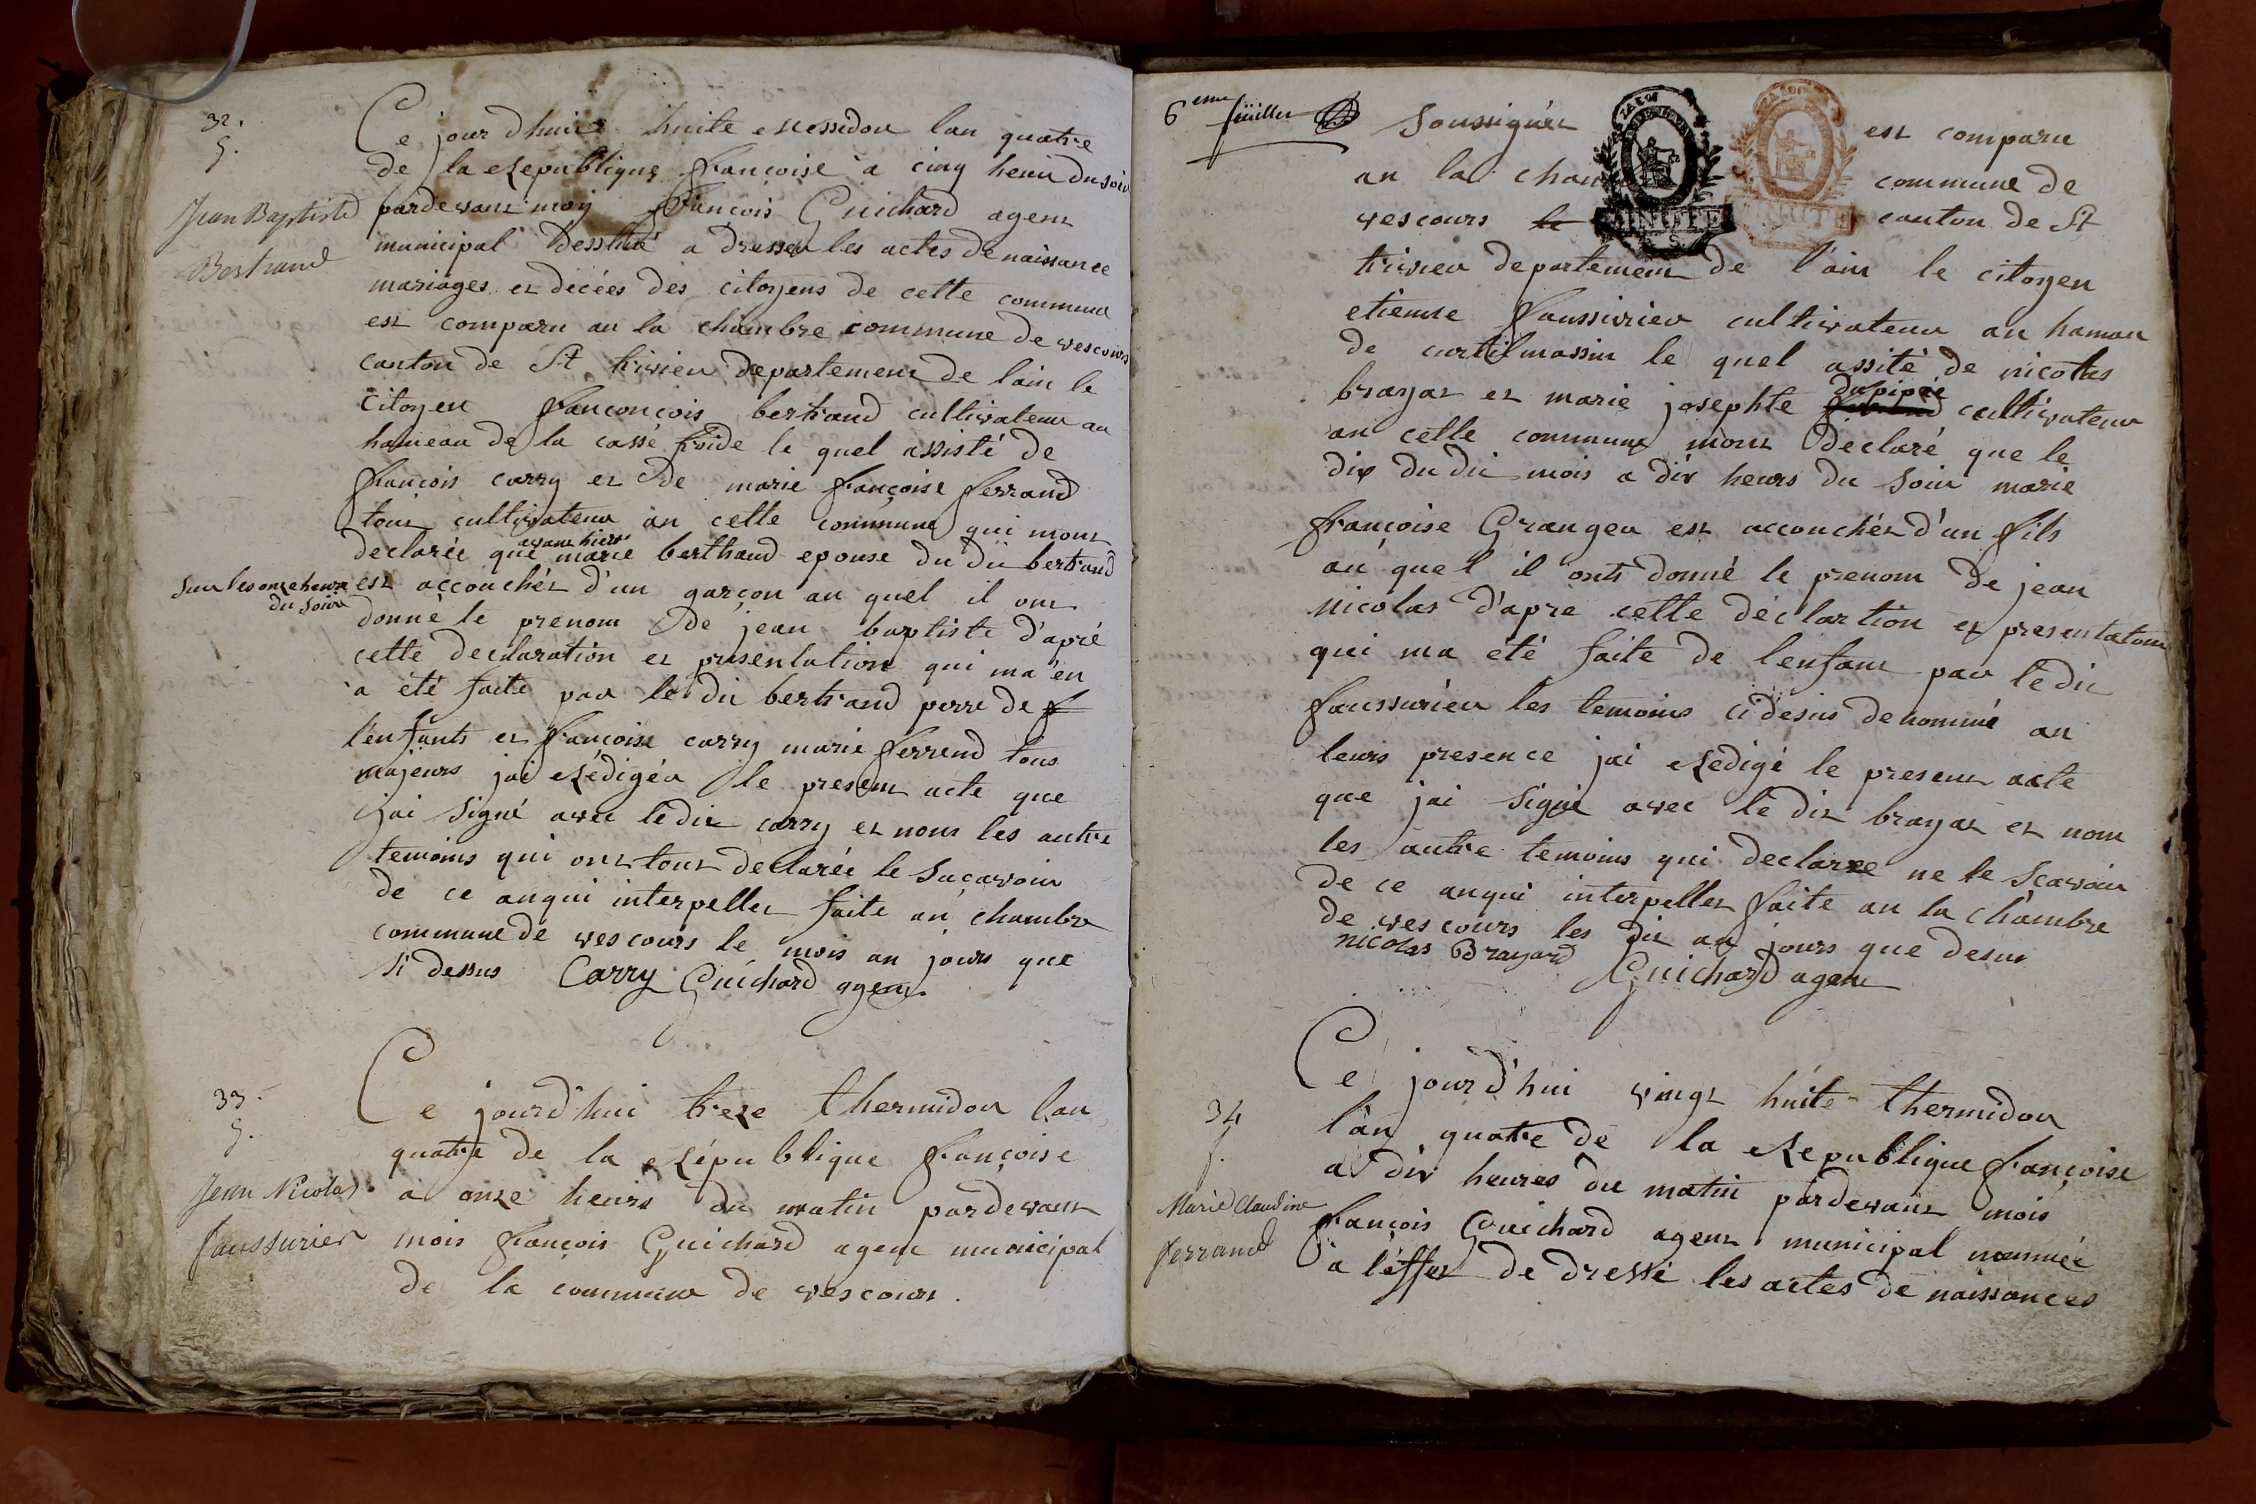 32.
5.
Jean Baptiste
Bertrand
Ce jour dhuit huite Messidor lan quatre
de la Republique françoise a cinq heur du soir
pardevant moy François Guichard agent
municipal dessiné a dresser les actes de naissance
mariages et décées des citoyens de cette commune
est comparu an la chambre commune de vescours
canton de St trivier departement de lain le
citoyen franconçois bertrand cultivateur au
hameau de la casse froide le quel assisté de
françois carry et de marie françoise ferrand
tous cultivateur an cette commune qui mont
declarée que avant hier marie berthaud epouse du dit bertrand
sur les onze heure du soir
est accouchér d'un garçon au quel il ont
donné le prenom de jean baptiste d'apré
cette declaration et presentation qui ma'en
a été faite par le dit bertrand perre de
l'enfants et françoise carry marie ferrend tous
majeurs jai Rédigér le present acte que
jai signé avec le dit carry et nom les autre
temoins qui ont tout declarée le saçavoir
de ce anqui interpeller faite an chambre
commune de vescours le mois an jours que
si dessus Carry Guichard agent
33.
5.
Jean Nicolas
faussurier
Ce jourd'hui treze thermidor lan
quatre de la République françoise
a onze heurs du matin pardevant
mois françois Guichard agent municipal
de la commune de vescour.
6eme feüillet
soussignér est comparu
an la cham commune de
vescours canton de St
MINUTE
trivier departement de l'ain le citoyen
etienne faussivrier cultivateur au hamau
de curtilmassin le quel assité de nicolas
brayat et marie josephte dupipée cultivateur
an cette commune mont déclaré que le
dix du dit mois a dix heurs du soir marie
françoise Granger est accouchér d'un fils
au quel il onts donné le prenom de jean
nicolas d'apre cette déclartion et presentation
qui ma été faite de lenfant par le dit
faussurier les temoins ci desus denommé an
leurs presence jai Rédigé le present acte
que jai signé avec le dit brayat et nom
les autre temoins qui declaree ne le scavoir
de ce anqui interpeller faite an la chambre
de vescours les dit an jours que desus
nicolas Brayard
Guichard agent
34
5.
Marie Claudine
ferrand
Ce jourd'hui vingt huite thermidor
l'an quatre de la Republique françoise
a dix heures du matin pardevant mois
françois Guichard agent municipal nommée
a l'effet de dressé les actes de naissances